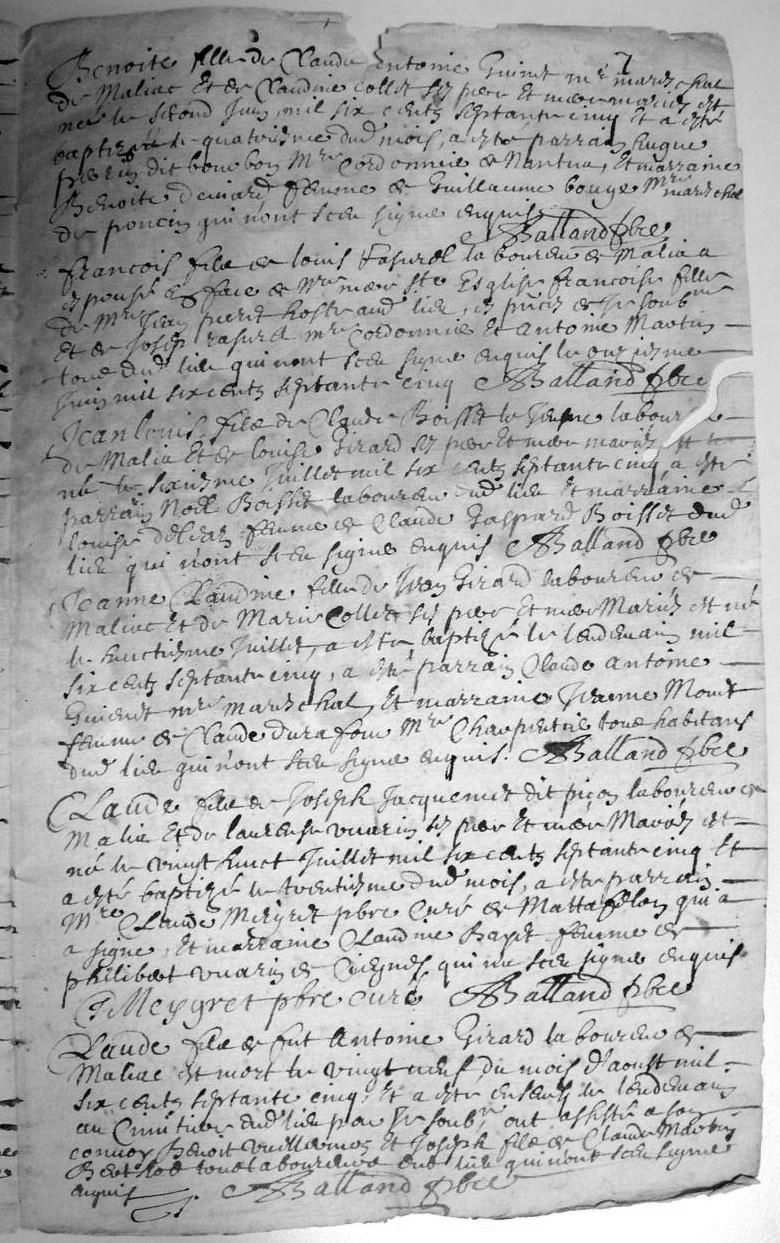 7
Benoite fille de Claude Antoine Guinet m.re mareschal
de Maliac et de Claudine Collet ses pere et mere mariés est
née le second Juin mil six cents septante cinq et a esté
baptizée le quatriesme dud mois, a esté parrain
dit bourbon M.re Cordonnier de Nantua, et marraine
Benoite femme de Guillaume bouge M.re mareschal
de poncin qui n'ont sceu signe enquis Balland pbre
francois filz de louis Rasurel laboureur de Malia a
espousé en face de n.re mere s.te Esglise francoise fille
de M.re Jean pierre hoste aud lieu, es pnces de Je soub.ne
et de Joseph rasurel m.re Cordonnier et Antoine Martin
tous dud lieu qui n'ont sceu signe enquis le onziesme
Juin mil six cents septante cinq Balland pbre
Jean louis filz de Claude Boisset le Jeune laboureur
de Malia et de louise Girard ses pere et mere mariés est
né le sixiesme Juillet mil six cents septante cinq a esté
parrain Noel Boisset laboureur dud lieu et marraine
louise femme de Claude Gaspard Boisset dud
lieu qui n'ont sceu signe enquis Balland pbre
Jeanne Claudine fille de Jean Girard laboureur de
Maliac et de Marie Collet ses pere et mere Mariés est né
le huictiesme Juillet, a esté baptizé le lendemain mil
six cents septante cinq, a esté parrain Claude Antoine
Guinet m.re mareschal, et marraine Jeanne Monet
femme de Claude durafour M.re Charpentie tous habitans
dud lieu qui n'ont sceu signe enquis. Balland pbre
Claude filz de Joseph Jacquemet dit picon laboureur de
Malia et de laurense vuarin ses pere et mere Mariés est
né le vingt huict Juillet mil six cents septante cinq et
a esté baptizé le trentiesme dud mois, a esté parrain
M.re Claude Meygret pbre Curé de Mattafelon qui a
a signe, et marraine Claudine Bayet femme de
philibert vuarin de qui ne sceu signe enquis
C Meygret pbre curé Balland pbre
Claude filz de fut Antoine Girard laboureur de
Maliac est mort le vingt neuf du mois d'aoust mil
six cents septante cinq, et a esté ensevely le lendemain
au Cimitiere dud lieu par Je soub.ne ont assisté a son
convoy Benoit vuillermoz et Joseph filz de Claude Martin
tous laboureurs dud lieu qui n'ont sceu signe
enquis Balland pbre